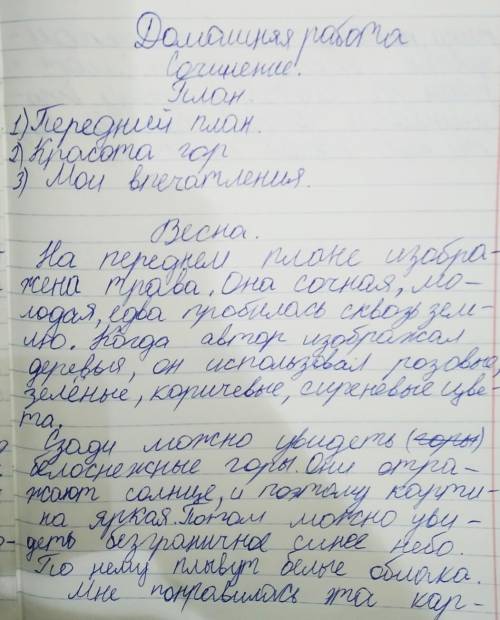 Домашняя работа
Сочинение.
План.
1) Передний план.
2) Красота гор
3) Мои впечатления.
Весна.
На переднем плане изобра-
жена трава. Она сочная, мо-
лодая, едва пробилась сквозь зем-
лю. Когда автор изображал
деревья, он использовал розовые,
зелёные, коричевые, сиреневые цве-
та.
Сзади можно увидеть (горы)
белоснежные горы. Они отра-
жают солнце, и поэтому карти-
на яркая. Потом можно уви-
деть безграничное синее небо.
По нему плывут белые облака.
Мне понравилась эта кар-